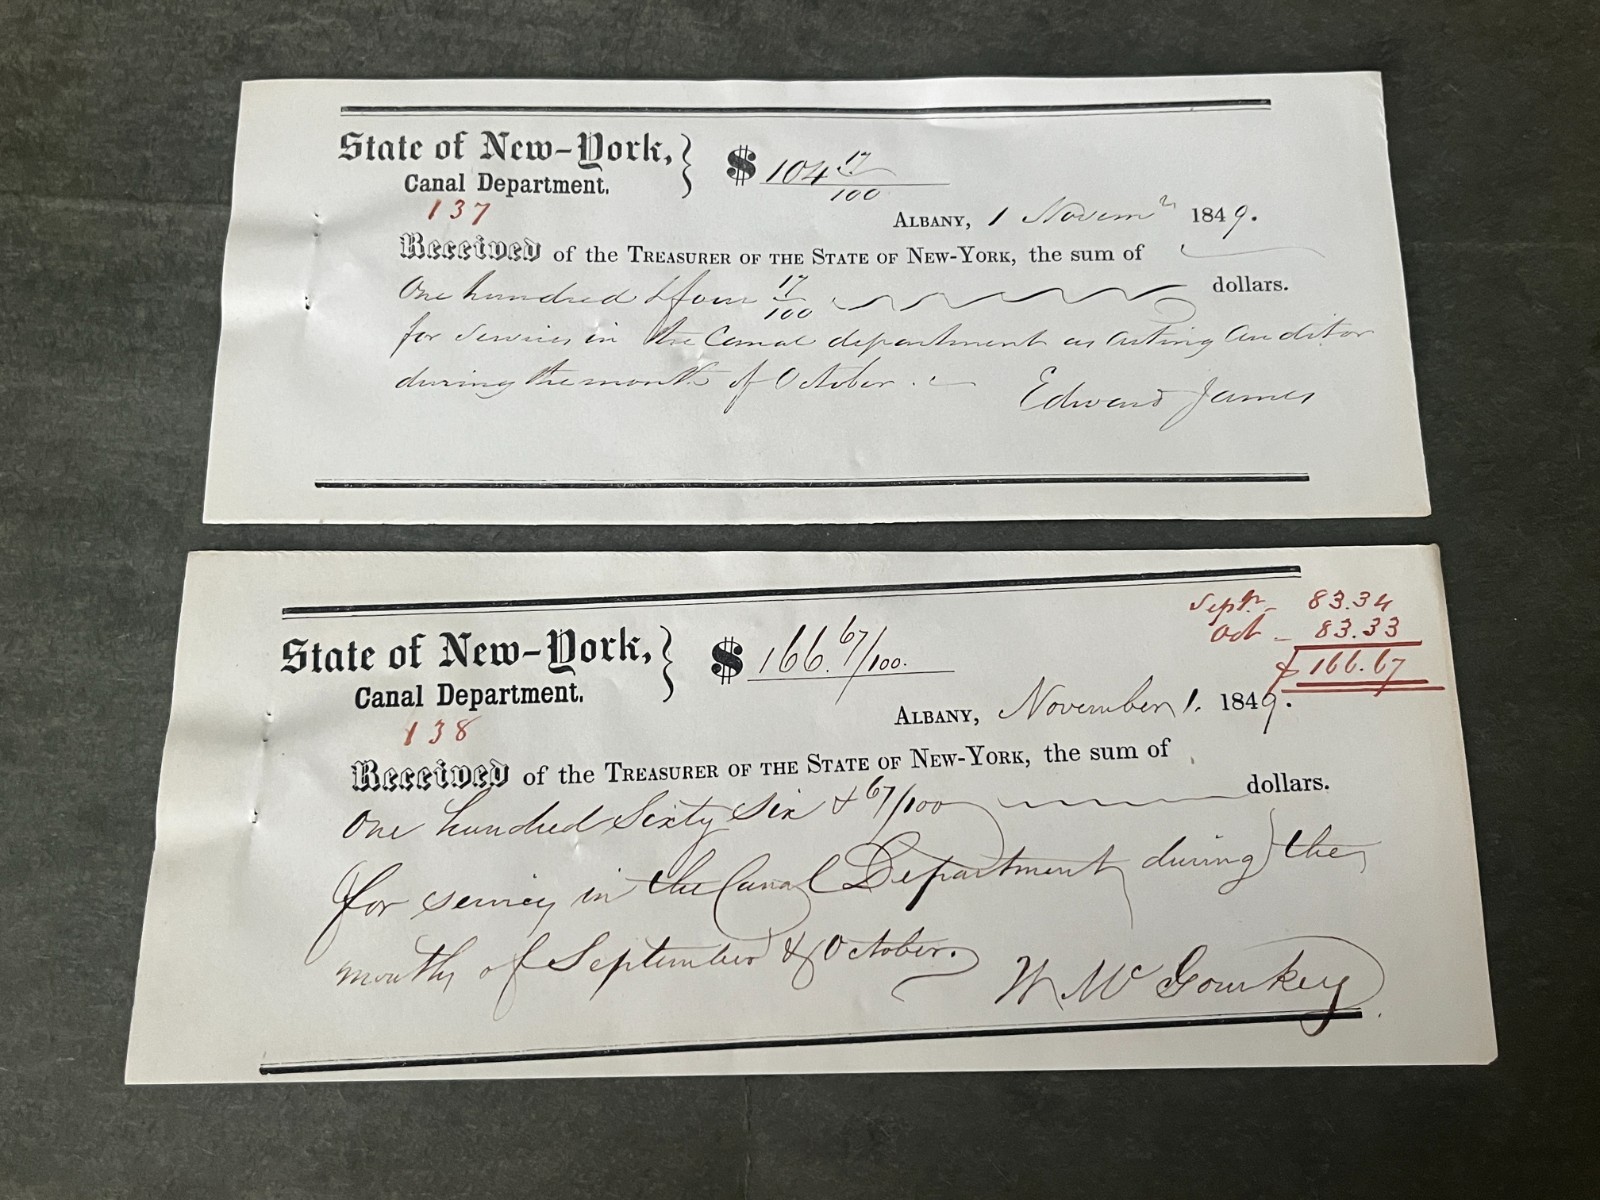 State of New-York, } $ 104 17/100
Canal Department.
137
ALBANY, 1 Novemr 1849.
Received of the TREASURER OF THE STATE OF NEW-YORK, the sum of
One hundred & four 17/100 dollars.
for services in the Canal department as acting Auditor
during the month of October.
Edward James
Septr - 83.34
Oct - 83.33
$ 166.67
State of New-York, } $ 166.67/100.
Canal Department.
138
ALBANY, November 1. 1849.
Received of the TREASURER OF THE STATE OF NEW-YORK, the sum of
One hundred Sixty Six & 67/100 dollars.
for services in the Canal Department during the
months of September & October.
W McGourkey